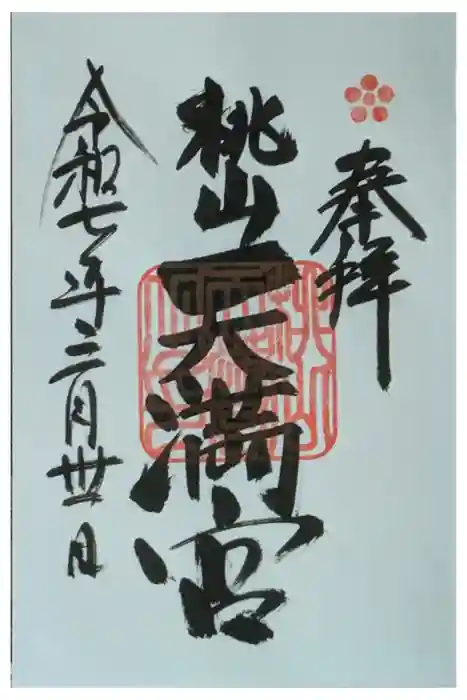 奉拝
桃山天満宮
令和七年三月卅日